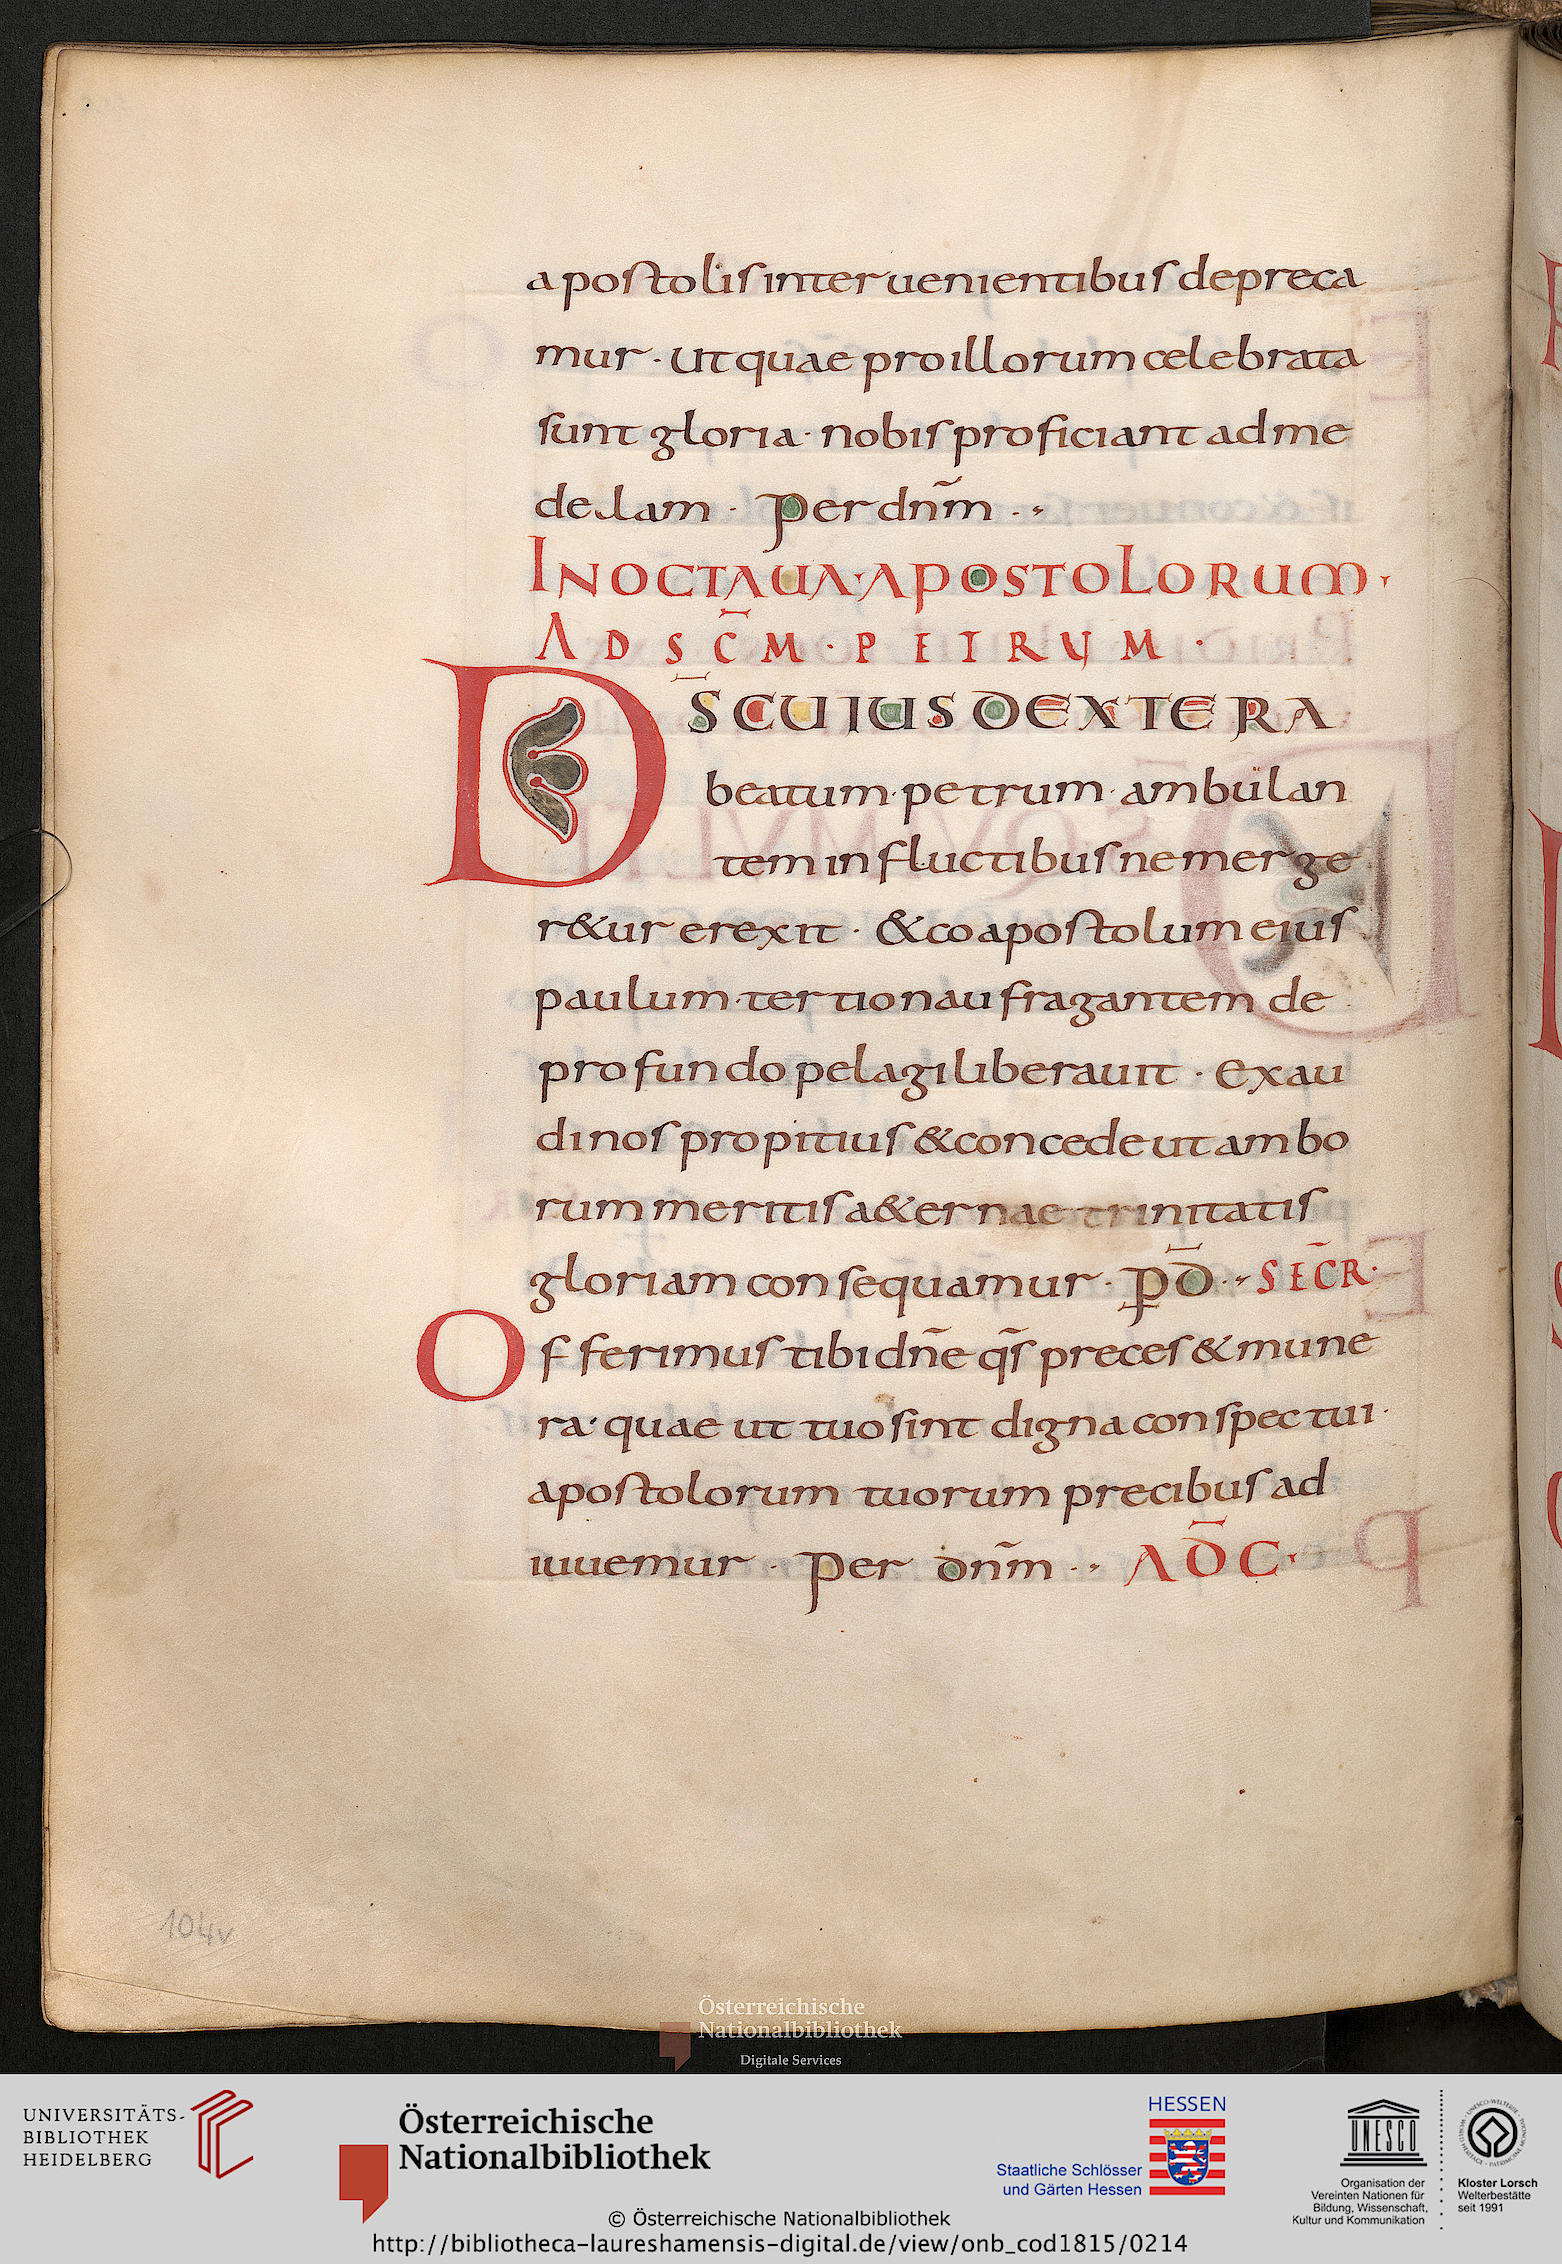 apostolis interuenientibus depreca
mur · ut quae pro illorum celebrata
sunt gloria · nobis proficiant ad me
delam · Per dnm̄ · ,
IN OCTAUA · APOSTOLORUM ·
AD SC̄M · PETRUM ·
D̄S CUIUS DEXTERA
beatum · petrum · ambulan
tem in fluctibus ne merge
r&ur erexit · & coapostolum eius
paulum · tertio naufragantem de
profundo pelagi liberauit · Exau
di nos propitius & concede ut ambo
rum meritis a&ernae trinitatis
gloriam consequamur · p̱ d̄ · , SEC̄R ·
Offerimus tibi dn̄e qs̄ preces & mune
ra · quae ut tuo sint digna conspectui ·
apostolorum tuorum precibus ad
iuuemur · Per dnm̄ · , AD̄ C ·
104v
Österreichische
Nationalbibliothek
Digitale Services
UNIVERSITÄTS-
BIBLIOTHEK
HEIDELBERG
Österreichische
Nationalbibliothek
HESSEN
Staatliche Schlösser
und Gärten Hessen
UNESCO
Organisation der
Vereinten Nationen für
Bildung, Wissenschaft,
Kultur und Kommunikation
Kloster Lorsch
Welterbestätte
seit 1991
© Österreichische Nationalbibliothek
http://bibliotheca-laureshamensis-digital.de/view/onb_cod1815/0214